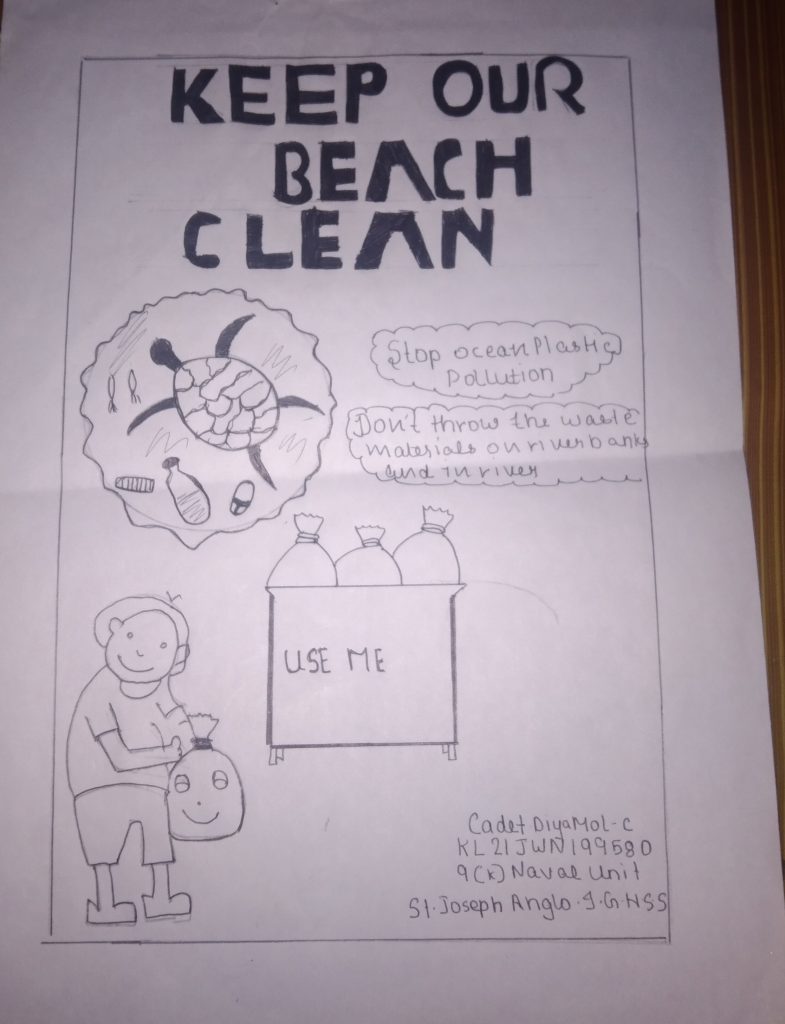 KEEP OUR
BEACH
CLEAN
Stop ocean Plastic
Pollution
Don't throw the waste
materials on river banks
and in river
USE ME
Cadet DiyaMol-C
KL 21 JWN 199580
9(K) Naval Unit
St. Joseph Anglo. I. G. HSS